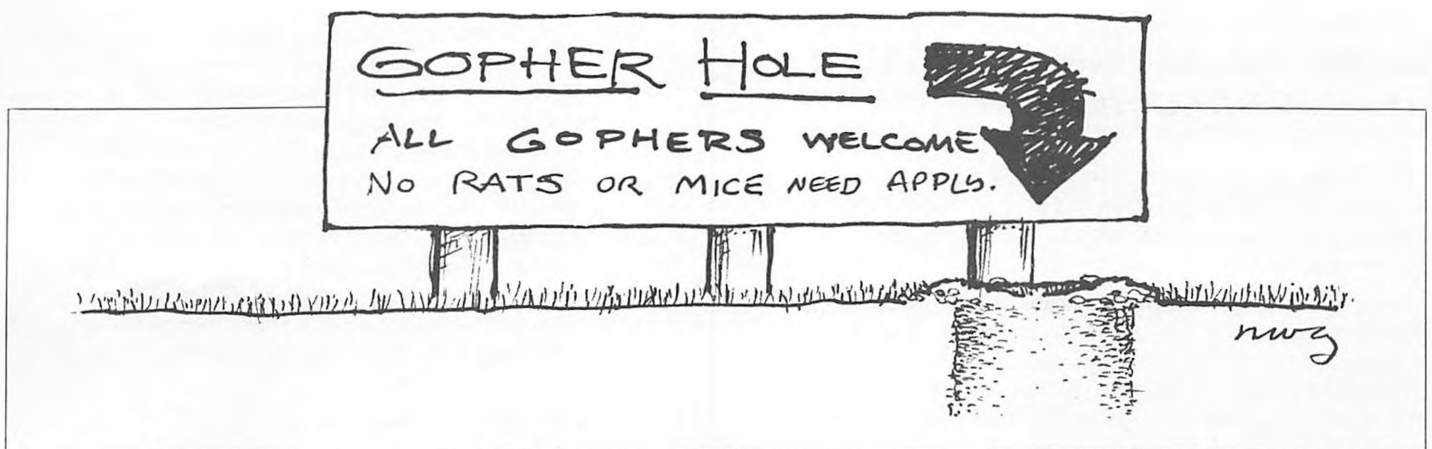 GOPHER HOLE
ALL GOPHERS WELCOME
NO RATS OR MICE NEED APPLY.
nwg